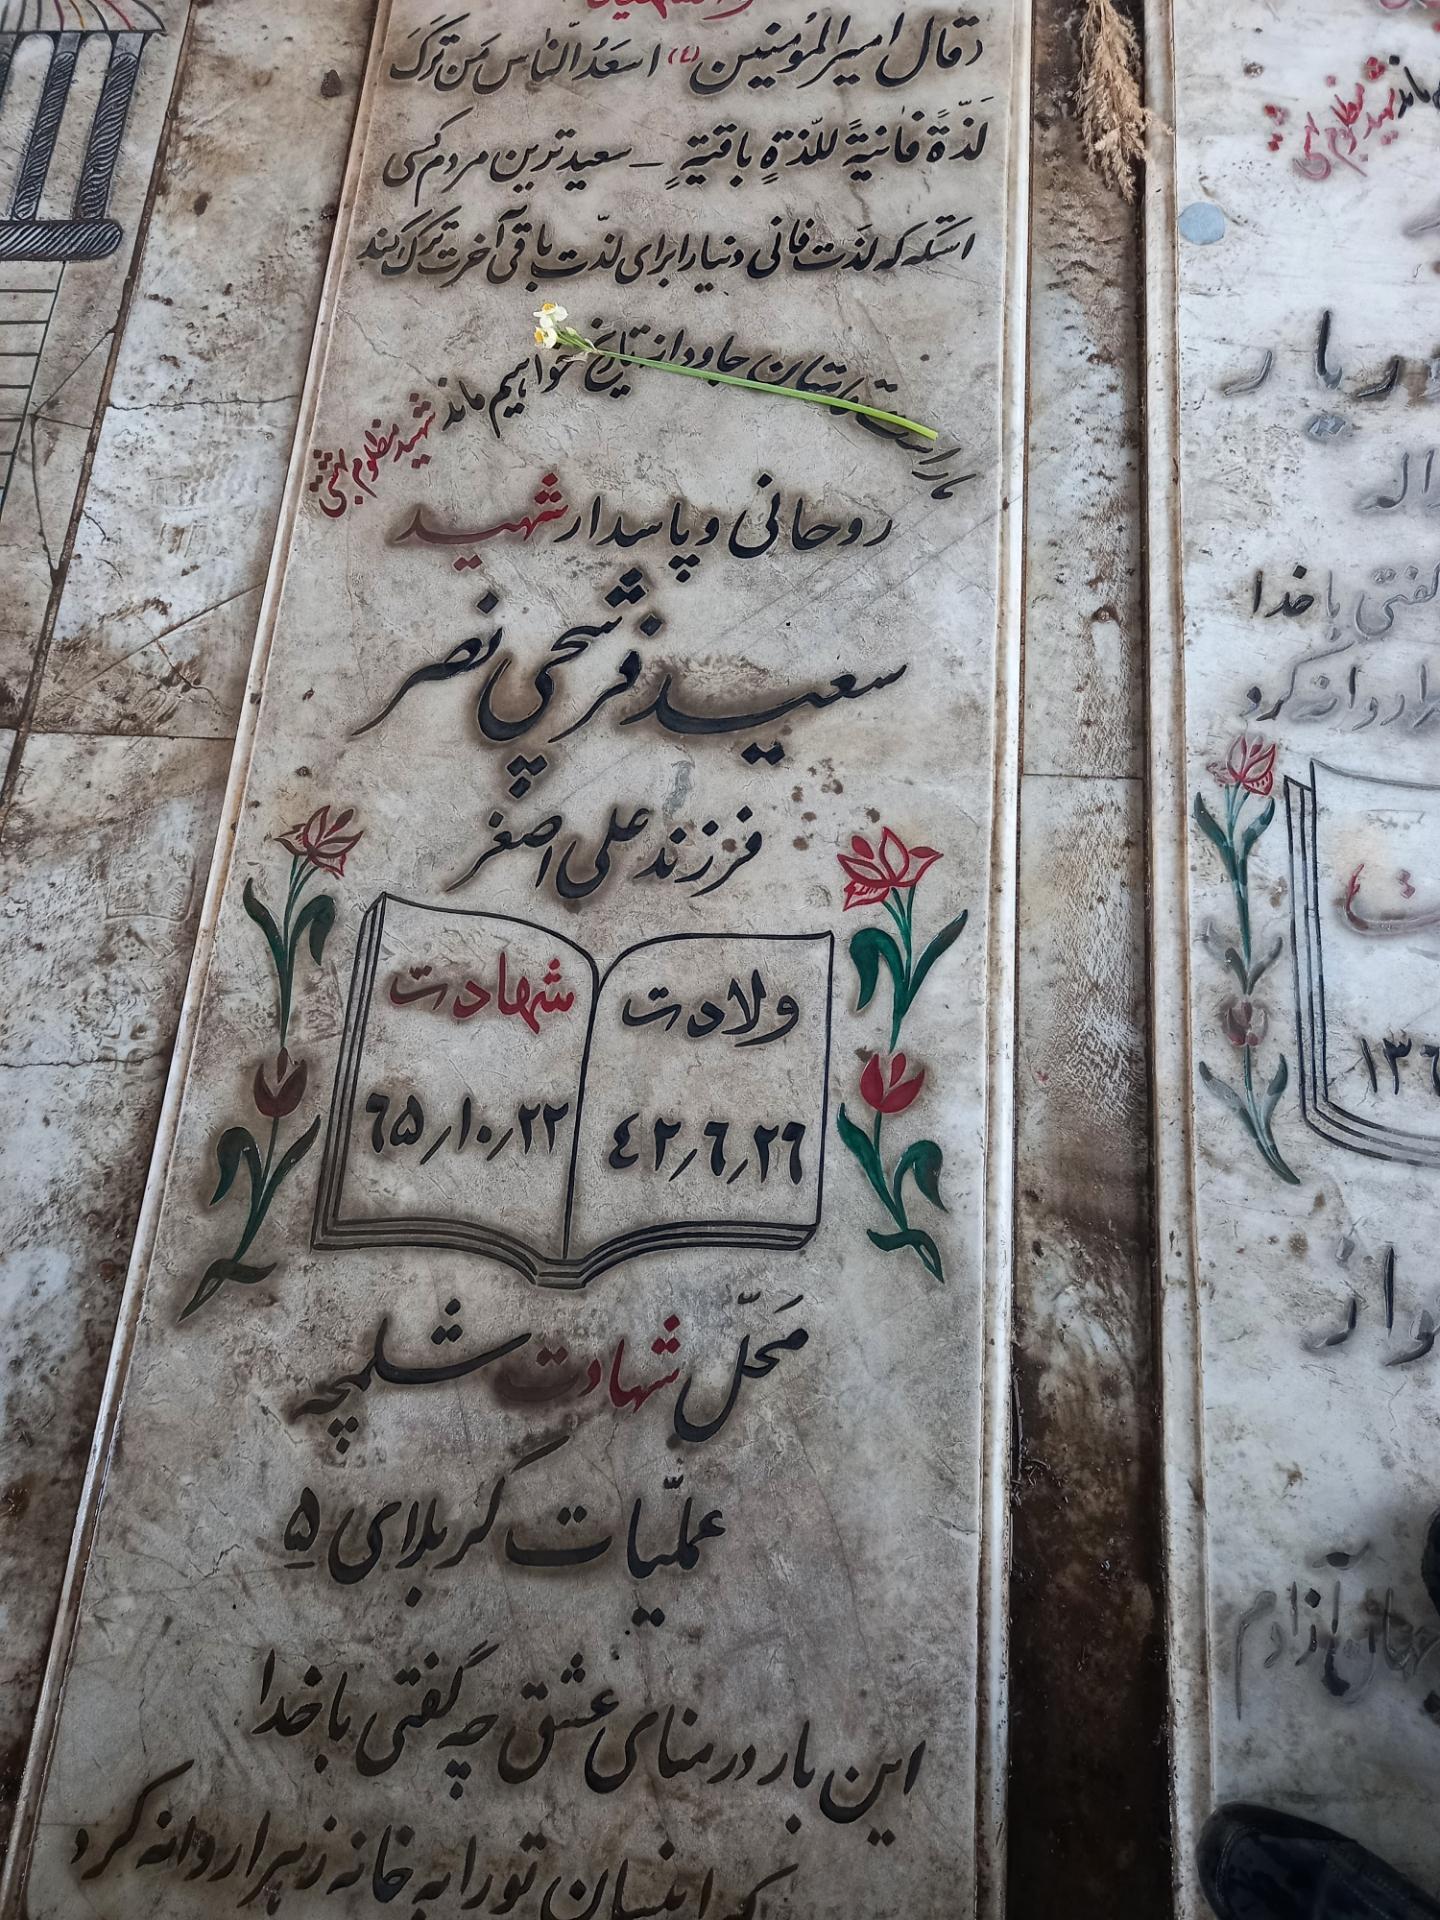 قال امیرالمؤمنین (ع) اسعَدُ النّاس مَن تَرَکَ
لَذّةً فٰانیَةً لِلَذّةٍ باقیَةٍ _ سعیدترین مردم کسی
استکه که لذّت فانی دنیا را برای لذّت باقی آخرت ترک کند
ما راست قامتان جاودانه تاریخ خواهیم ماند شهید مظلوم بهشتی
روحانی و پاسدار شهید
سعید فرشچی نصر
فرزند علی اصغر
ولادت
۴۲٫۶٫۲۶
شهادت
۶۵٫۱۰٫۲۲
محلّ شهادت شلمچه
عملیّات کربلای ۵
این بار در منای عشق چه گفتی با خدا
کـ اینسان تو را به خانه زهرا روانه کرد
ماند شهید مظلوم بهشتی
گفتی با خدا
را روانه کرد
۱۳۶